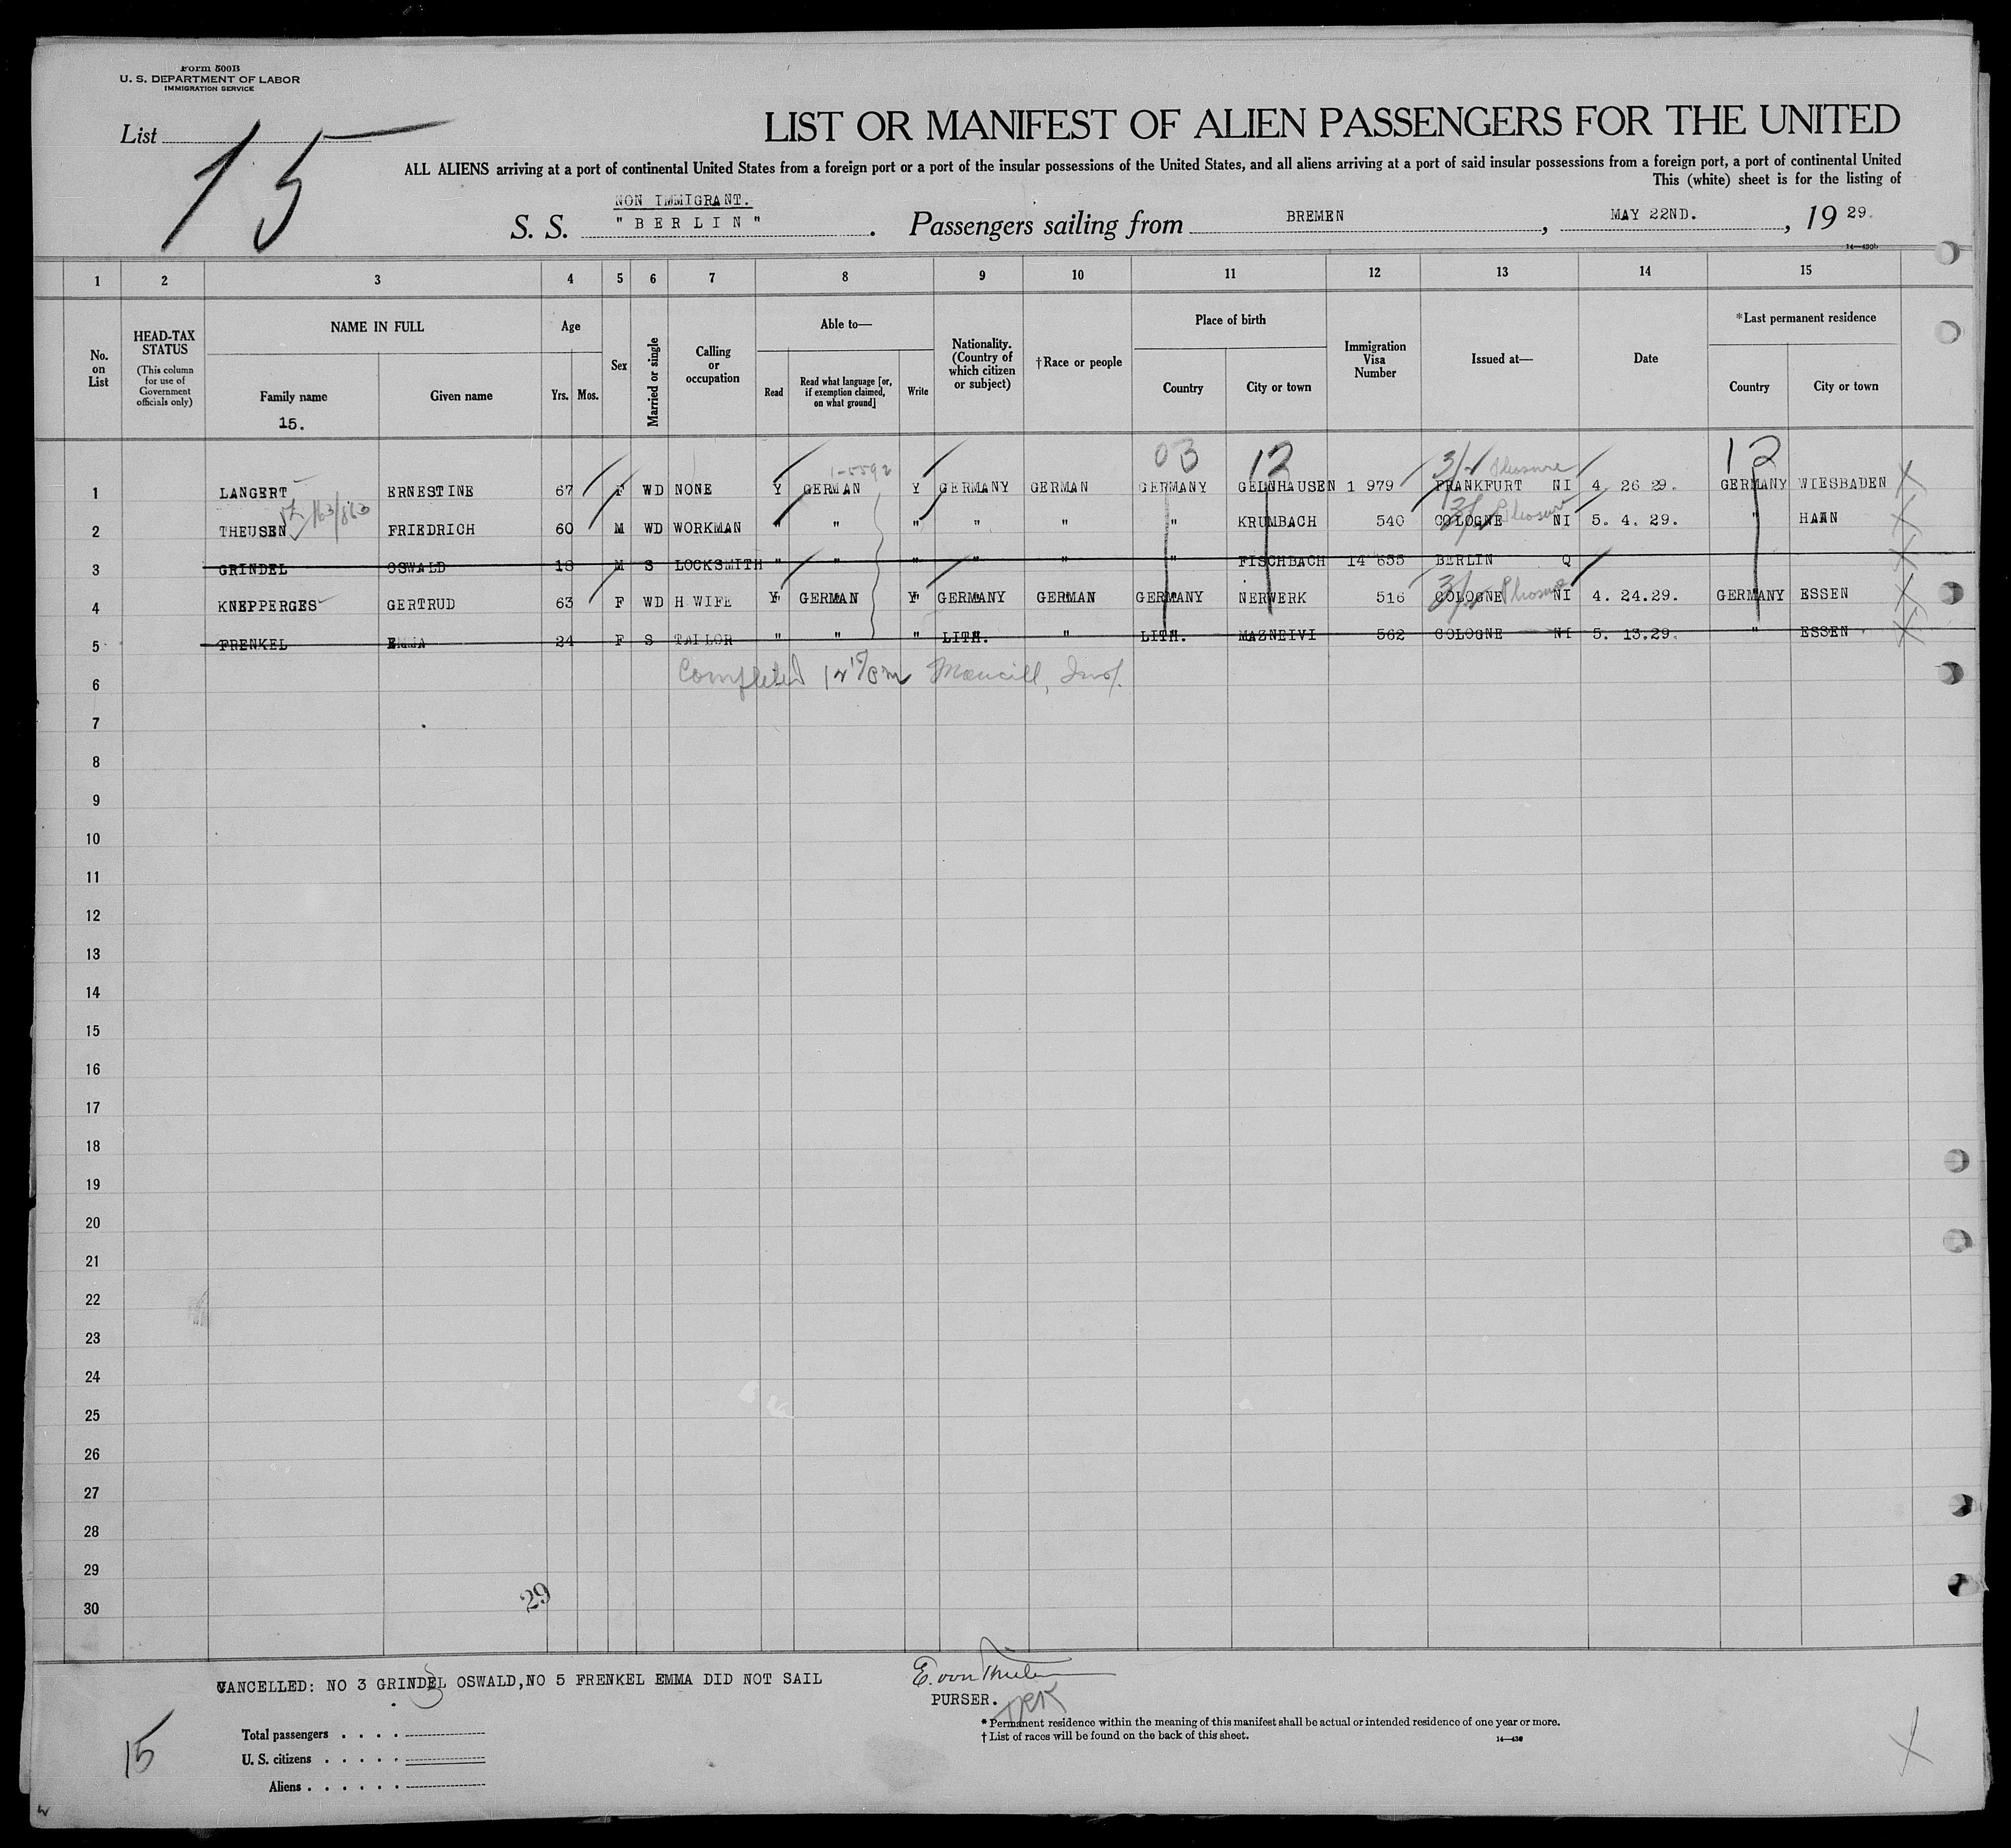 Form 500B
U. S. DEPARTMENT OF LABOR
IMMIGRATION SERVICE
List 15
LIST OR MANIFEST OF ALIEN PASSENGERS FOR THE UNITED
ALL ALIENS arriving at a port of continental United States from a foreign port or a port of the insular possessions of the United States, and all aliens arriving at a port of said insular possessions from a foreign port, a port of continental United
This (white) sheet is for the listing of
NON IMMIGRANT.
S. S. "BERLIN". Passengers sailing from BREMEN, MAY 22ND., 19 29.
14—430b
1 2 3 4 5 6 7 8 9 10 11 12 13 14 15
No. on List
HEAD-TAX STATUS
(This column for use of Government officials only)
NAME IN FULL
Family name
Given name
15.
Age
Yrs. Mos.
Sex
Married or single
Calling or occupation
Able to—
Read
Read what language [or, if exemption claimed, on what ground]
Write
Nationality. (Country of which citizen or subject)
†Race or people
Place of birth
Country
City or town
Immigration Visa Number
Issued at—
Date
*Last permanent residence
Country
City or town
03 12 3/- Pleasure 12
1-5592
1 LANGERT ERNESTINE 67 F WD NONE Y GERMAN Y GERMANY GERMAN GERMANY GELNHAUSEN 1 979 FRANKFURT NI 4 26 29. GERMANY WIESBADEN X
163/863
2 THEUSEN FRIEDRICH 60 M WD WORKMAN " " " " " " KRUMBACH 540 COLOGNE NI 5. 4. 29. " HAAN X
Pleasure
3 GRINDEL OSWALD 18 M S LOCKSMITH " " " " " " FISCHBACH 14 655 BERLIN Q X
4 KNEPPERGES GERTRUD 63 F WD H WIFE Y GERMAN Y GERMANY GERMAN GERMANY NERWERK 516 COLOGNE NI 4. 24.29. GERMANY ESSEN X
Pleasure
5 FRENKEL EMMA 24 F S TAILOR " " " LITH. " LITH. MAZNEIVI 562 COLOGNE NI 5. 13.29. " ESSEN X
Completed
6
7
8
9
10
11
12
13
14
15
16
17
18
19
20
21
22
23
24
25
26
27
28
29
30
29
CANCELLED: NO 3 GRINDEL OSWALD,NO 5 FRENKEL EMMA DID NOT SAIL
PURSER.
* Permanent residence within the meaning of this manifest shall be actual or intended residence of one year or more.
† List of races will be found on the back of this sheet.
14—430
15
Total passengers
U. S. citizens
Aliens
X